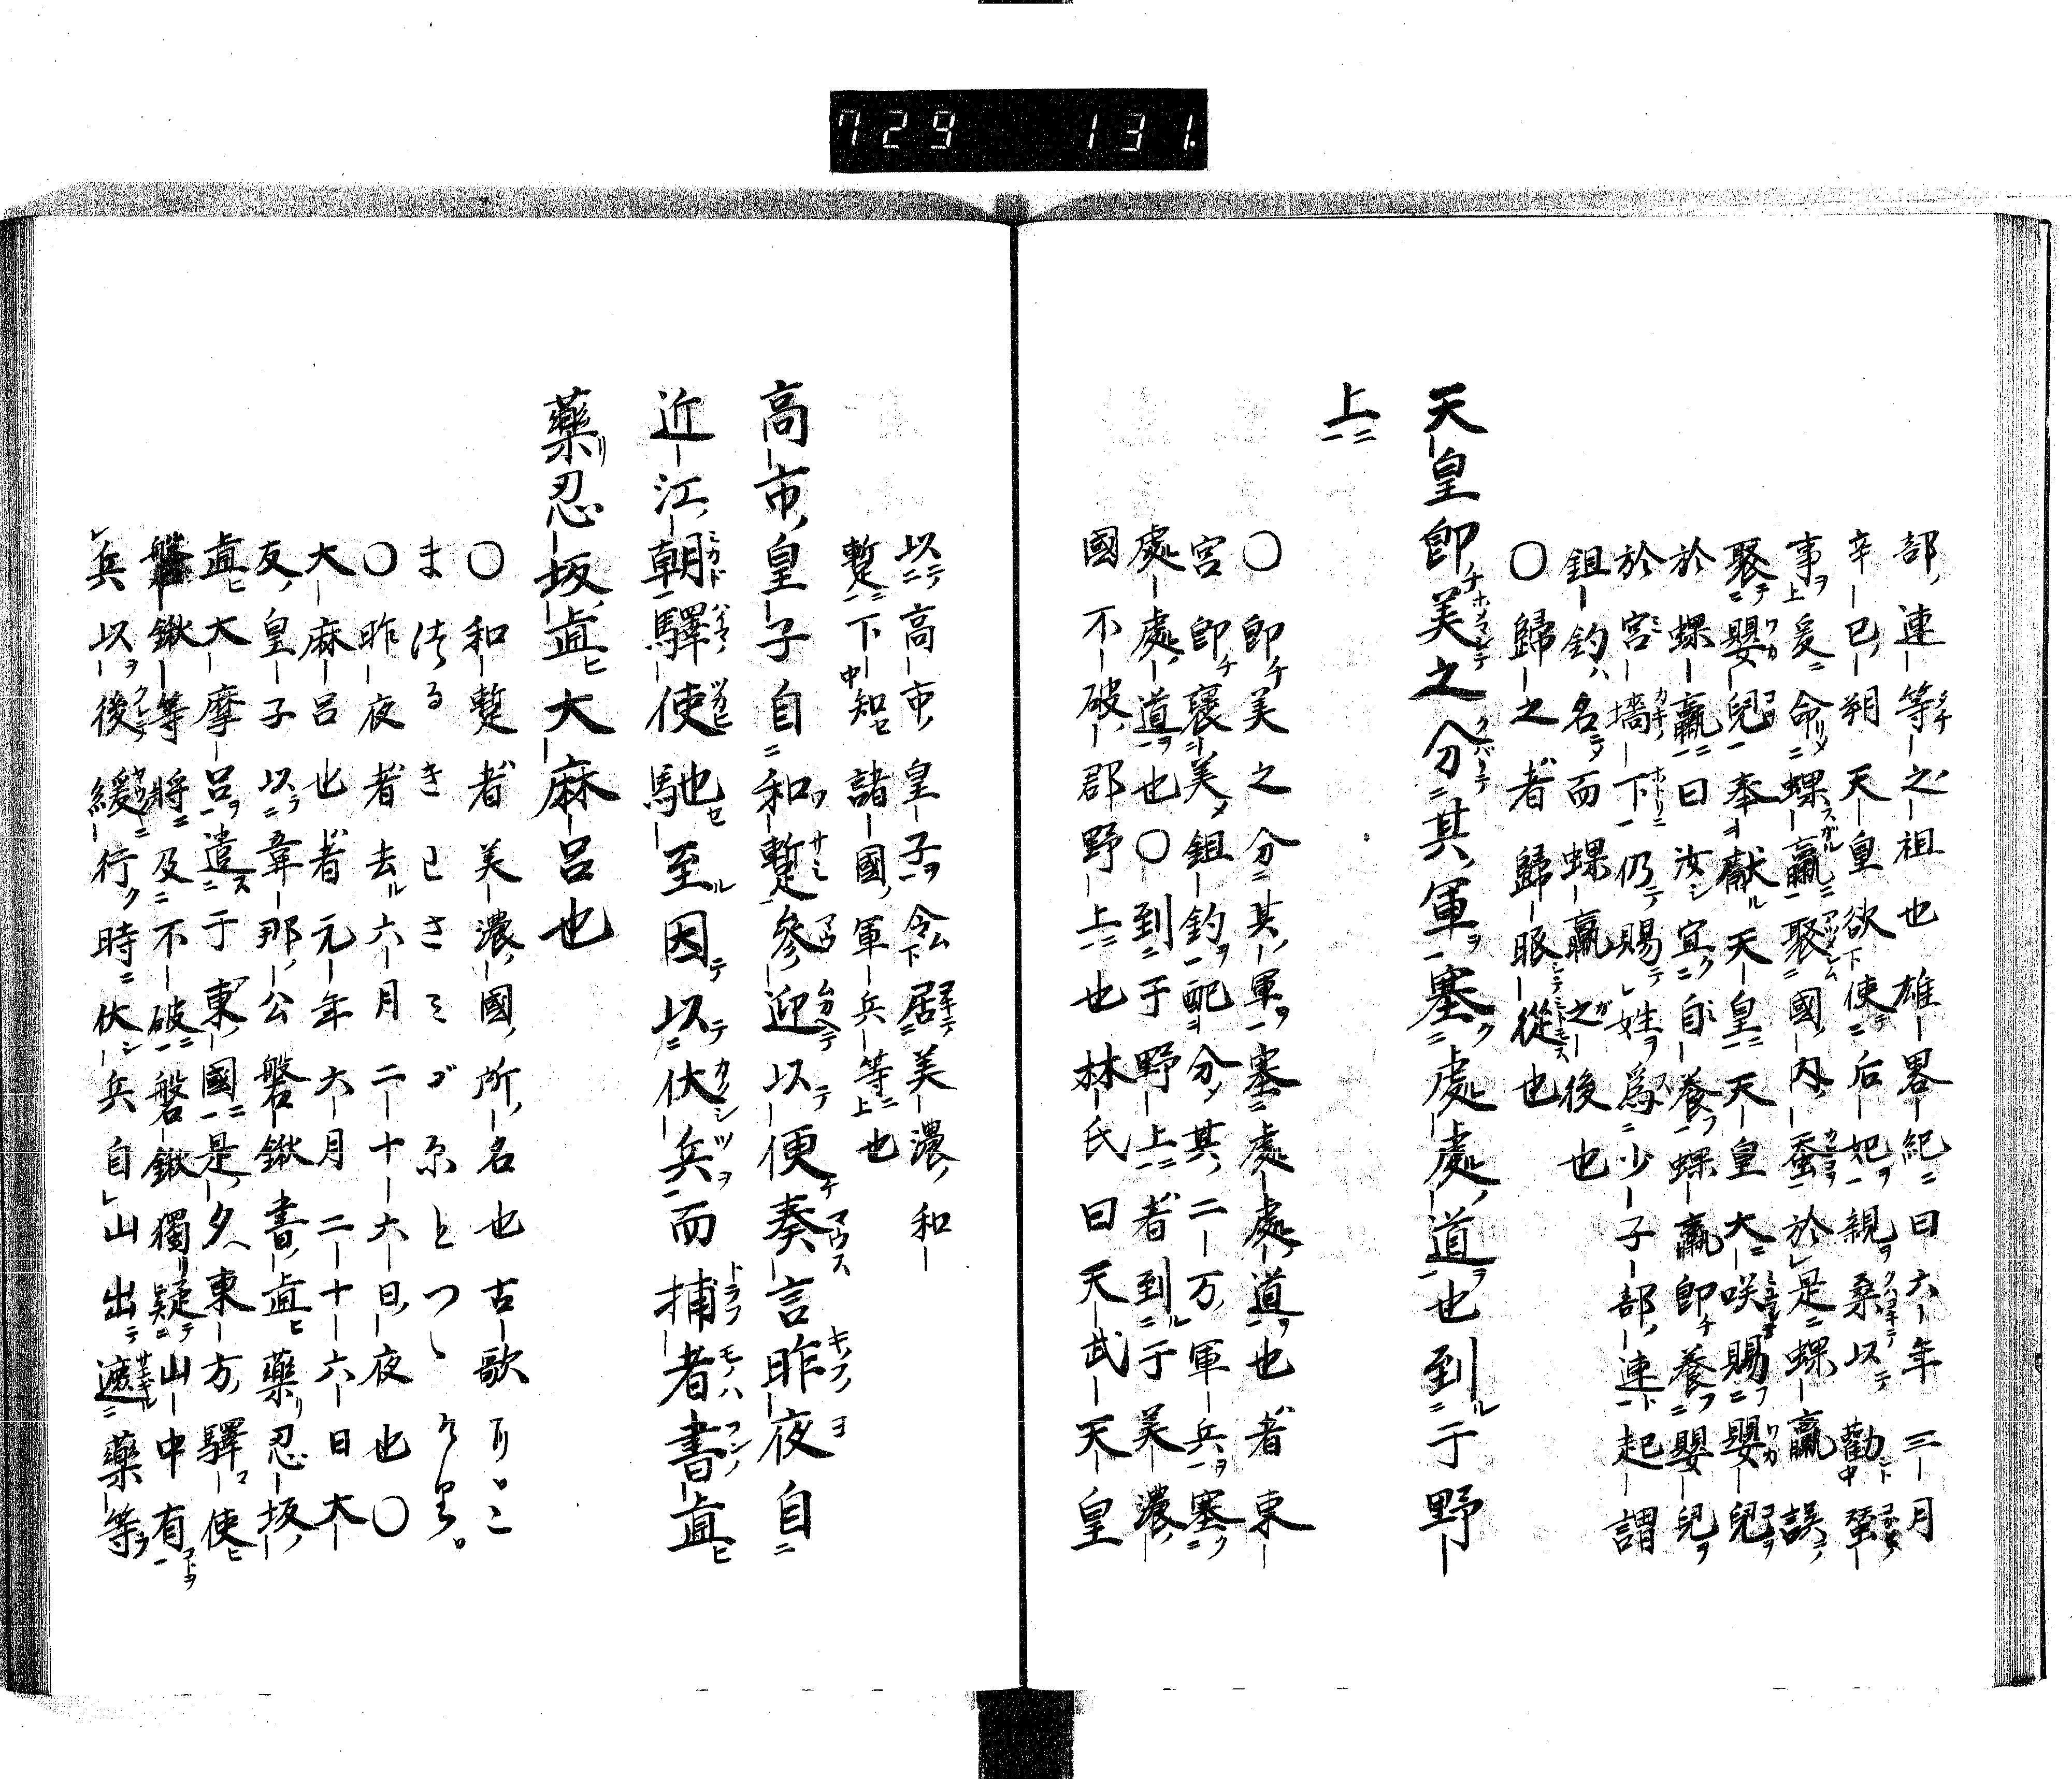 729 131.
部連等之祖也雄畧紀曰六年三月
辛巳朔天皇欲使后妃親桑以勸蚕
事爰命蜾蠃聚國内蚕於是蜾蠃誤
聚嬰兒奉獻天皇天皇大咲賜嬰兒
於蜾蠃曰汝宜自養蜾蠃即養嬰兒
於宮墻下仍賜姓爲少子部連起謂
鉏鈎名而蜾蠃之後也
〇歸之者歸眼從也
天皇即美之分其軍塞處處道也到于野
上
〇即美之分其軍塞處處道也者東
宮即褒美鉏鈎配分其二万軍兵塞
處處道也〇到于野上者到于美濃
國不破郡野上也林氏曰天武天皇
以高市皇子令居美濃和
蹔下知諸國軍兵等也
高市皇子自和蹔參迎以便奏言昨夜自
近江朝驛使馳至因以伏兵而捕者書直
藥忍坂直大麻呂也
〇和蹔者美濃國所名也古歌
〇昨夜者去六月二十六日夜也〇
大麻呂也者元年六月二十六日大
友皇子以韋那公磐鍬書直藥忍坂
直大摩呂遣于東國是夕東方驛使
磐鍬等將及不破磐鍬獨疑山中有
兵以後緩行時伏兵自山出遮藥等